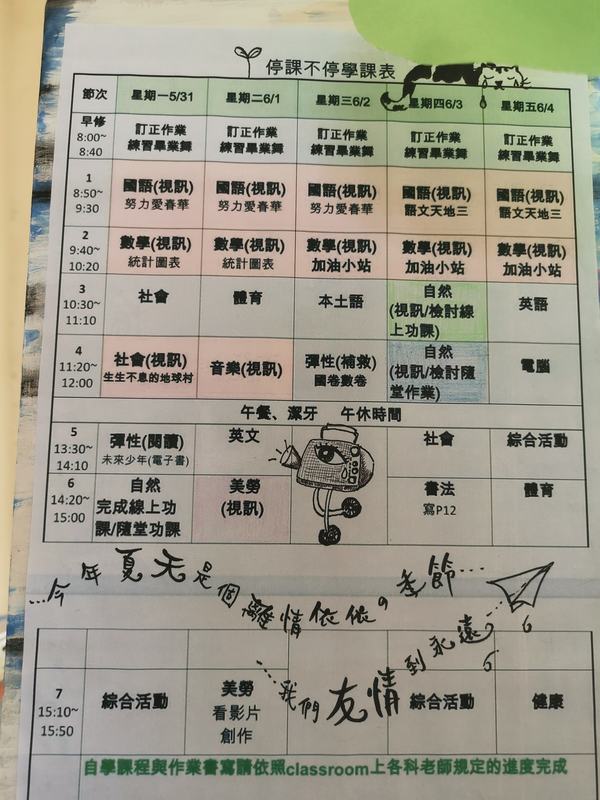 停課不停學課表
節次 星期一5/31 星期二6/1 星期三6/2 星期四6/3 星期五6/4
早修 8:00~ 8:40 訂正作業 練習畢業舞 訂正作業 練習畢業舞 訂正作業 練習畢業舞 訂正作業 練習畢業舞 訂正作業 練習畢業舞
1 8:50~ 9:30 國語(視訊) 努力愛春華 國語(視訊) 努力愛春華 國語(視訊) 努力愛春華 國語(視訊) 語文天地三 國語(視訊) 語文天地三
2 9:40~ 10:20 數學(視訊) 統計圖表 數學(視訊) 統計圖表 數學(視訊) 加油小站 數學(視訊) 加油小站 數學(視訊) 加油小站
3 10:30~ 11:10 社會 體育 本土語 自然 (視訊/檢討線上功課) 英語
4 11:20~ 12:00 社會(視訊) 生生不息的地球村 音樂(視訊) 彈性(補救) 國卷數卷 自然 (視訊/檢討隨堂作業) 電腦
午餐、潔牙 午休時間
5 13:30~ 14:10 彈性(閱讀) 未來少年(電子書) 英文 社會 綜合活動
6 14:20~ 15:00 自然 完成線上功課/隨堂功課 美勞 (視訊) 書法 寫P12 體育
...今年夏天是個離情依依的季節...
...我們友情到永遠
7 15:10~ 15:50 綜合活動 美勞 看影片 創作 綜合活動 健康
自學課程與作業書寫請依照classroom上各科老師規定的進度完成